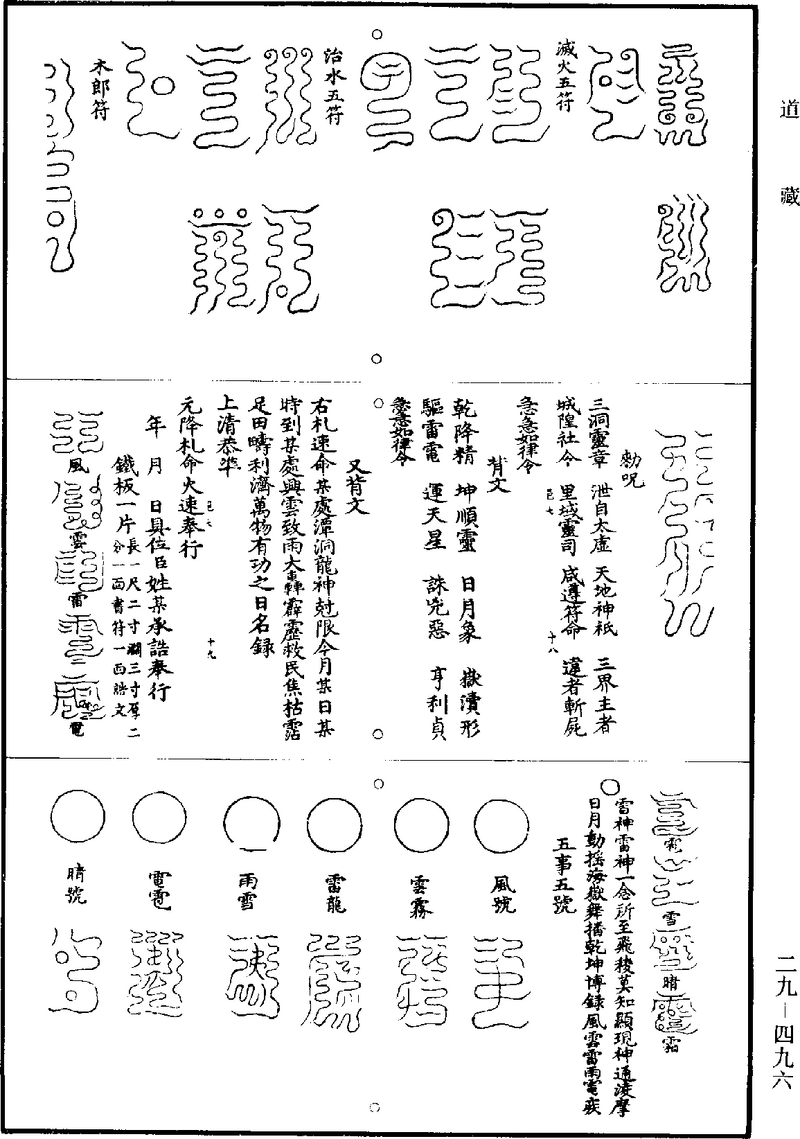 道藏
滅火五符
治水五符
木郎符
勅呪
三洞靈章 泄自太虛 天地神祇 三界主者
城隍社令 里域靈司 咸遵符命 違者斬屍
急急如律令
背文
乾降精 坤順靈 日月象 嶽瀆形
驅雷電 運天星 誅兇惡 亨利貞
急急如律令
又背文
右札速命某處潭洞龍神尅限今月某日某
時到某處興雲致雨大轟霹靂救民焦枯霑
足田疇利濟萬物有功之日名録
上清恭准
元降札命火速奉行
年 月 日具位臣姓某承誥奉行
鐵板一片長一尺二寸闊三寸厚二
分一面書符一面
文
風
雲
雷
電
雪
晴
霜
雷神雷神一念所至飛
莫知顯現神通
摩
日月動摇海嶽舞播乾坤博録風雲雷雨電
五事五號
風號
雲霧
雷龍
雨雪
電雹
晴號
二九－四九六